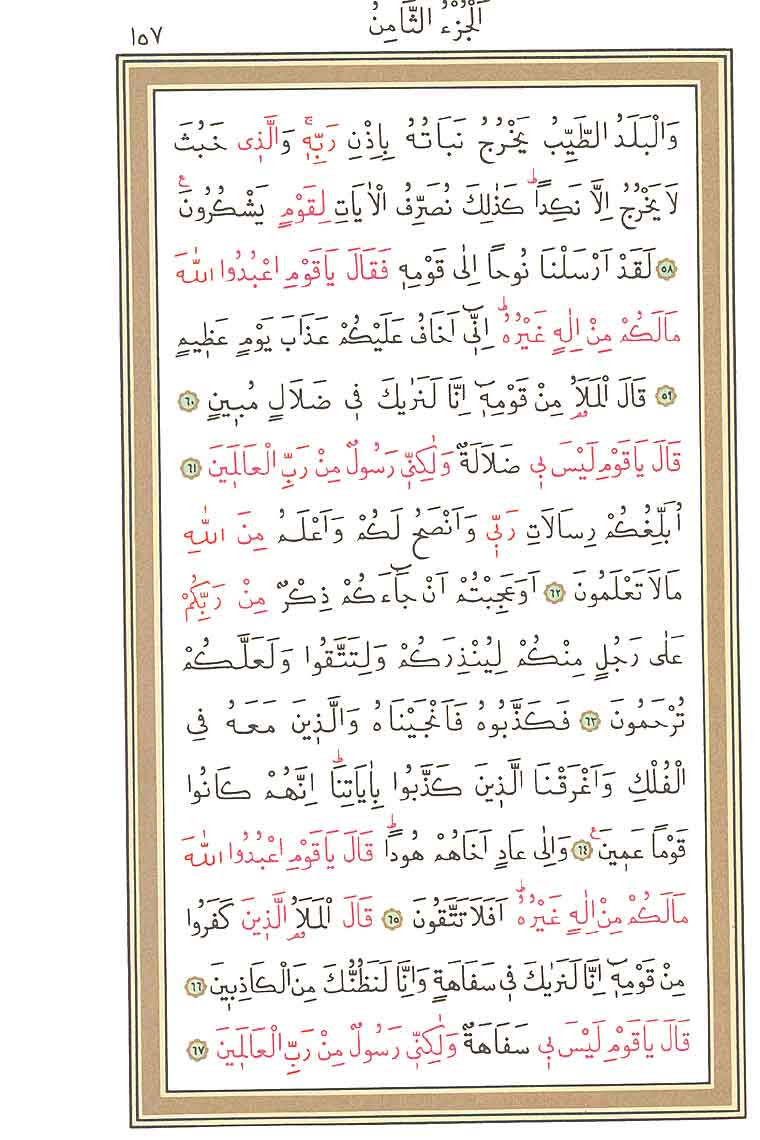 اَلْجُزْءُ الثَّامِنُ
١٥٧
وَالْبَلَدُ الطَّيِّبُ يَخْرُجُ نَبَاتُهُ بِاِذْنِ رَبِّهٖۚ وَالَّذٖى خَبُثَ
لَا يَخْرُجُ اِلَّا نَكِداًؕ كَذٰلِكَ نُصَرِّفُ الْاٰيَاتِ لِقَوْمٍ يَشْكُرُونَ
٥٨ لَقَدْ اَرْسَلْنَا نُوحاً اِلٰى قَوْمِهٖ فَقَالَ يَا قَوْمِ اعْبُدُوا اللّٰهَ
مَالَكُمْ مِنْ اِلٰهٍ غَيْرُهُؕ اِنّٖٓى اَخَافُ عَلَيْكُمْ عَذَابَ يَوْمٍ عَظٖيمٍ
٥٩ قَالَ الْمَلَاُ مِنْ قَوْمِهٖٓ اِنَّا لَنَرٰيكَ فٖى ضَلَالٍ مُبٖينٍ ٦٠
قَالَ يَا قَوْمِ لَيْسَ بٖى ضَلَالَةٌ وَلٰكِنّٖى رَسُولٌ مِنْ رَبِّ الْعَالَمٖينَ ٦١
اُبَلِّغُكُمْ رِسَالَاتِ رَبّٖى وَاَنْصَحُ لَكُمْ وَاَعْلَمُ مِنَ اللّٰهِ
مَالَا تَعْلَمُونَ ٦٢ اَوَعَجِبْتُمْ اَنْ جَٓاءَكُمْ ذِكْرٌ مِنْ رَبِّكُمْ
عَلٰى رَجُلٍ مِنْكُمْ لِيُنْذِرَكُمْ وَلِتَتَّقُوا وَلَعَلَّكُمْ
تُرْحَمُونَ ٦٣ فَكَذَّبُوهُ فَاَنْجَيْنَاهُ وَالَّذٖينَ مَعَهُ فِى
الْفُلْكِ وَاَغْرَقْنَا الَّذٖينَ كَذَّبُوا بِاٰيَاتِنَاؕ اِنَّهُمْ كَانُوا
قَوْماً عَمٖينَ ٦٤ وَاِلٰى عَادٍ اَخَاهُمْ هُوداًؕ قَالَ يَا قَوْمِ اعْبُدُوا اللّٰهَ
مَالَكُمْ مِنْ اِلٰهٍ غَيْرُهُؕ اَفَلَا تَتَّقُونَ ٦٥ قَالَ الْمَلَاُ الَّذٖينَ كَفَرُوا
مِنْ قَوْمِهٖٓ اِنَّا لَنَرٰيكَ فٖى سَفَاهَةٍ وَاِنَّا لَنَظُنُّكَ مِنَ الْكَاذِبٖينَ ٦٦
قَالَ يَا قَوْمِ لَيْسَ بٖى سَفَاهَةٌ وَلٰكِنّٖى رَسُولٌ مِنْ رَبِّ الْعَالَمٖينَ ٦٧